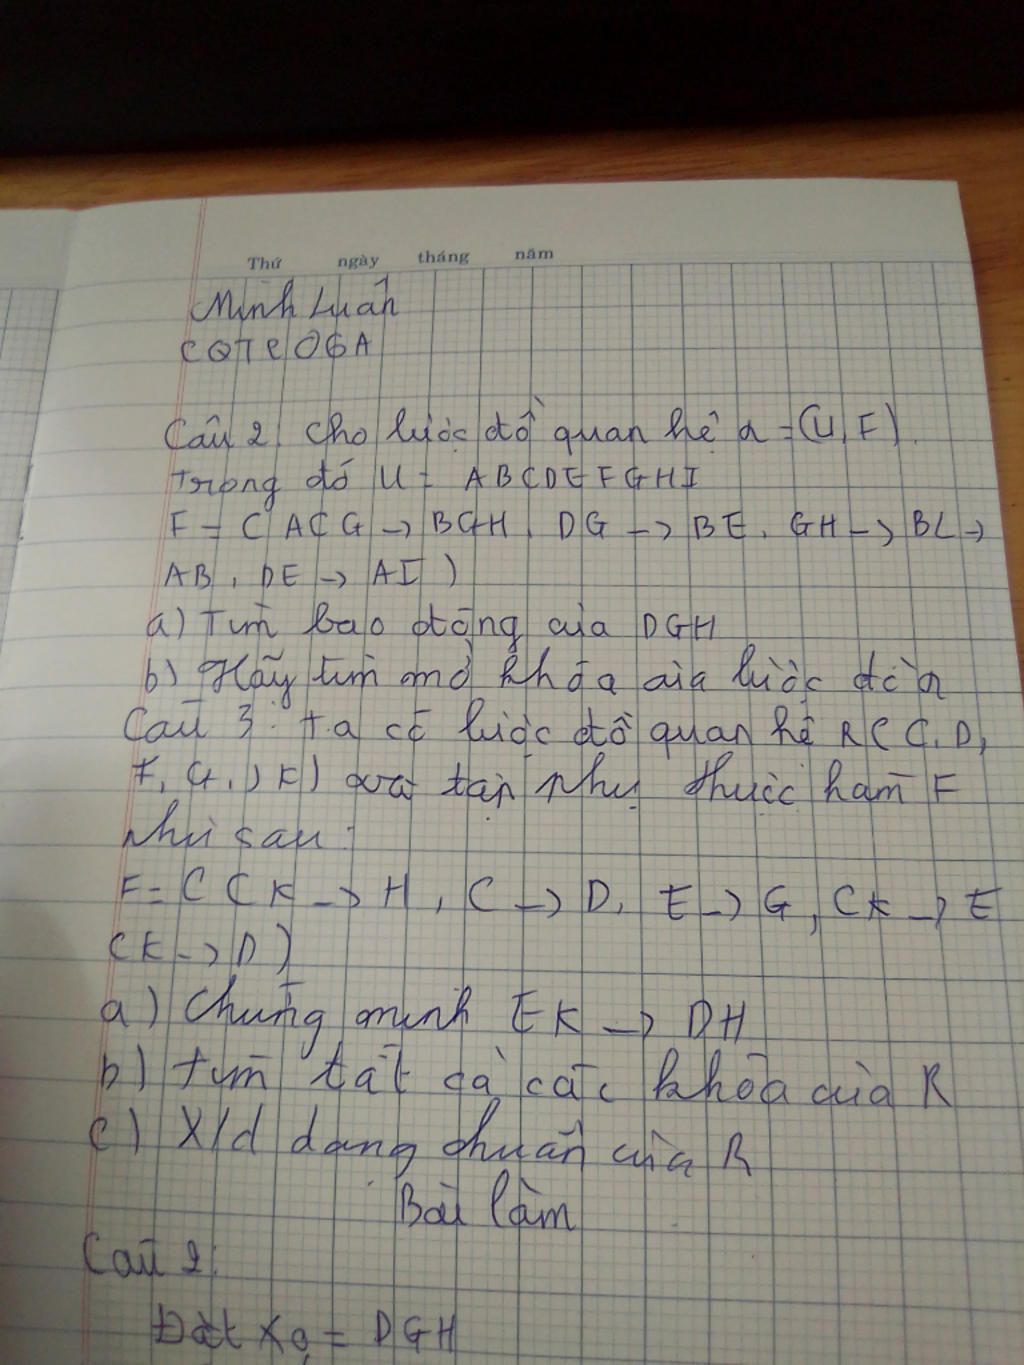 Thứ ngày tháng năm
Minh Luân
CQTC06A
Câu 2. Cho lược đồ quan hệ a = (U, F).
Trong đó U = ABCDEFGHI
F = ( ACG -> BGH, DG -> BE, GH -> BC ->
AB, DE -> AI )
a) Tìm bao đóng của DGH
b) Hãy tìm khóa của lược đồ a
Câu 3: ta có lược đồ quan hệ R( C, D,
E, G, K) và tập phụ thuộc hàm F
như sau:
F = ( CK -> H, C -> D, E -> G, CK -> E
CK -> D )
a) Chứng minh EK -> DH
b) tìm tất cả các khóa của R
c) X/d dạng chuẩn của R
Bài làm
Câu 2:
Đặt X₀ = DGH